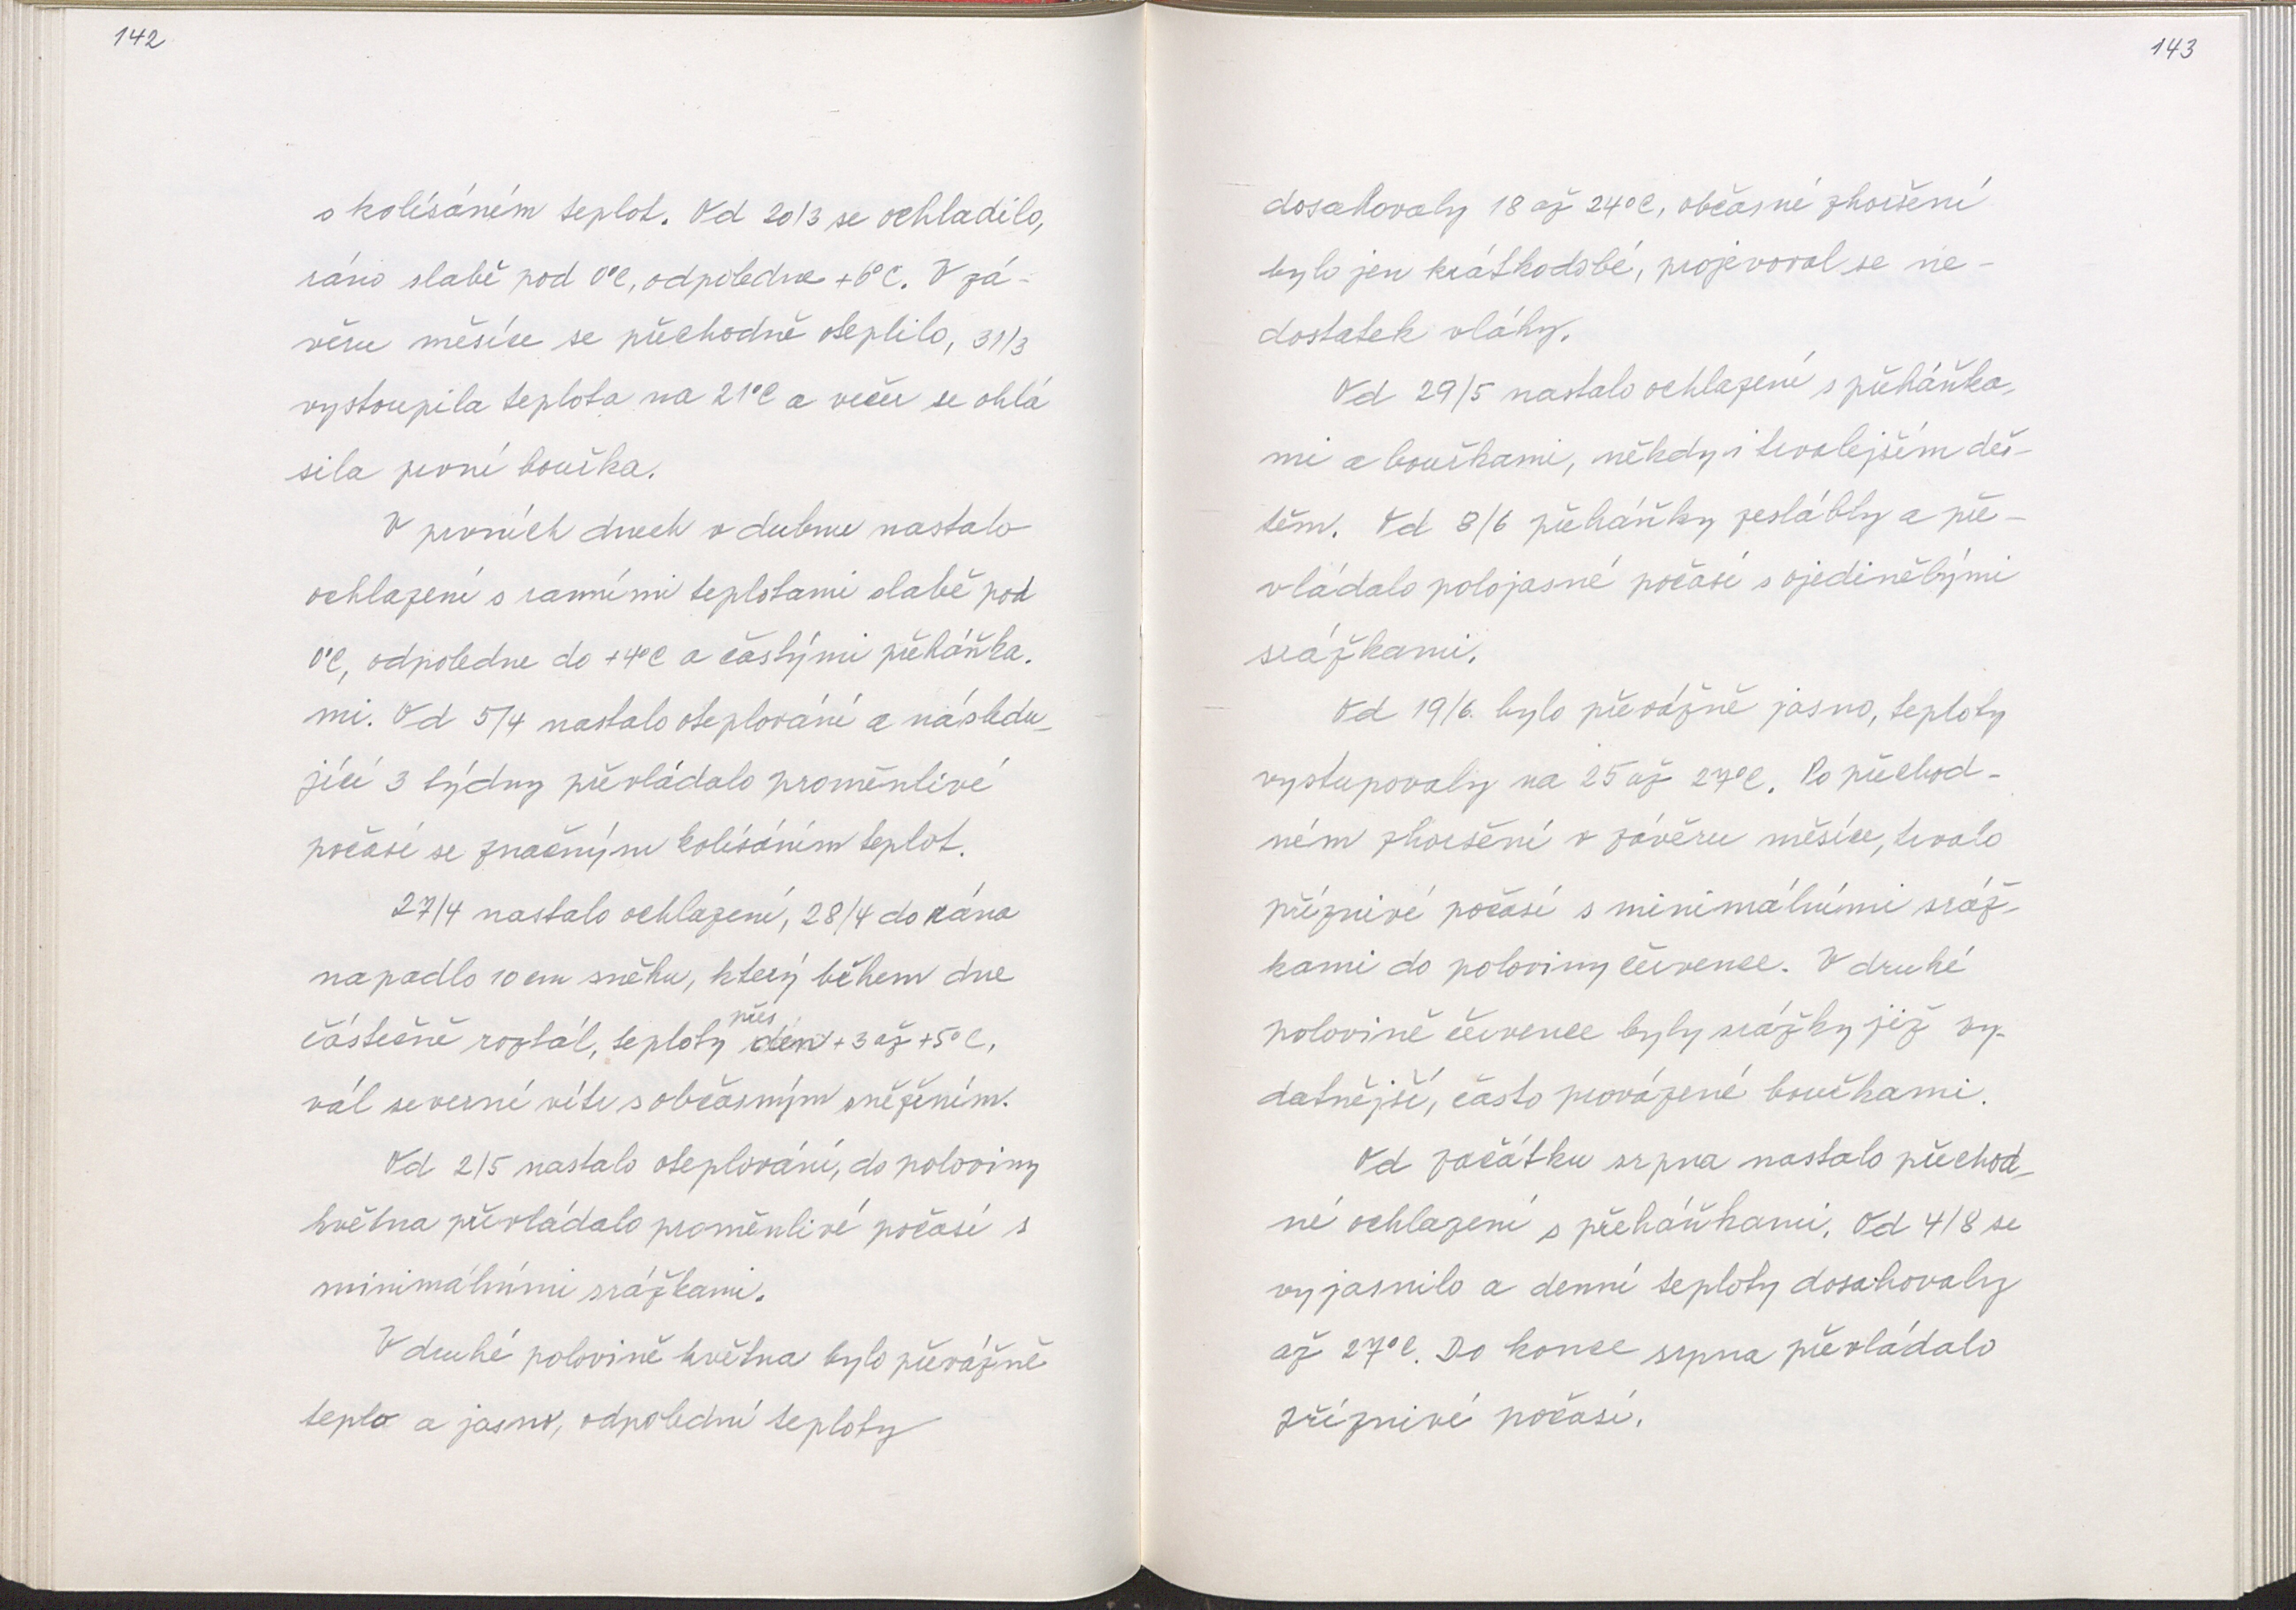 142
s kolísáném teplot. Od 20/3 se ochladilo,
ráno slabě pod 0°C, odpoledne +6°C. V zá-
věru měsíce se přechodně oteplilo, 31/3
vystoupila teplota na 21°C a večer se ohlá
sila první bouřka.
V prvních dnech v dubnu nastalo
ochlazení s ranními teplotami slabě pod
0°C, odpoledne do +4°C a častými přeháňka.
mi. Od 5/4 nastalo oteplování a následu-
jící 3 týdny převládalo proměnlivé
počasí se značným kolísáním teplot.
27/4 nastalo ochlazení, 28/4 do rána
napadlo 10 cm sněhu, který během dne
částečně roztál, teploty přes den +3 až +5°C,
vál severní vítr s občasným sněžením.
Od 2/5 nastalo oteplování, do poloviny
května převládalo proměnlivé počasí s
minimálními srážkami.
V druhé polovině května bylo převážně
teplo a jasno, odpolední teploty
143
dosahovaly 18 až 24°C, občasné zhoršení
bylo jen krátkodobé, projevoval se ne-
dostatek vláhy.
Od 29/5 nastalo ochlazení s přeháňka,
mi a bouřkami, někdy i trvalejším deš-
těm. Od 8/6 přeháňky zeslábly a pře-
vládalo polojasné počasí s ojedinělými
srážkami.
Od 19/6. bylo převážně jasno, teploty
vystupovaly na 25 až 27°C. Po přechod-
ném zhoršení v závěru měsíce, trvalo
příznivé počasí s minimálními sráž-
kami do poloviny července. V druhé
polovině července byly srážky již vy-
datnější, často provázené bouřkami.
Od začátku srpna nastalo přechod-
né ochlazení s přeháňkami. Od 4/8 se
vyjasnilo a denní teploty dosahovaly
až 27°C. Do konce srpna převládalo
příznivé počasí.